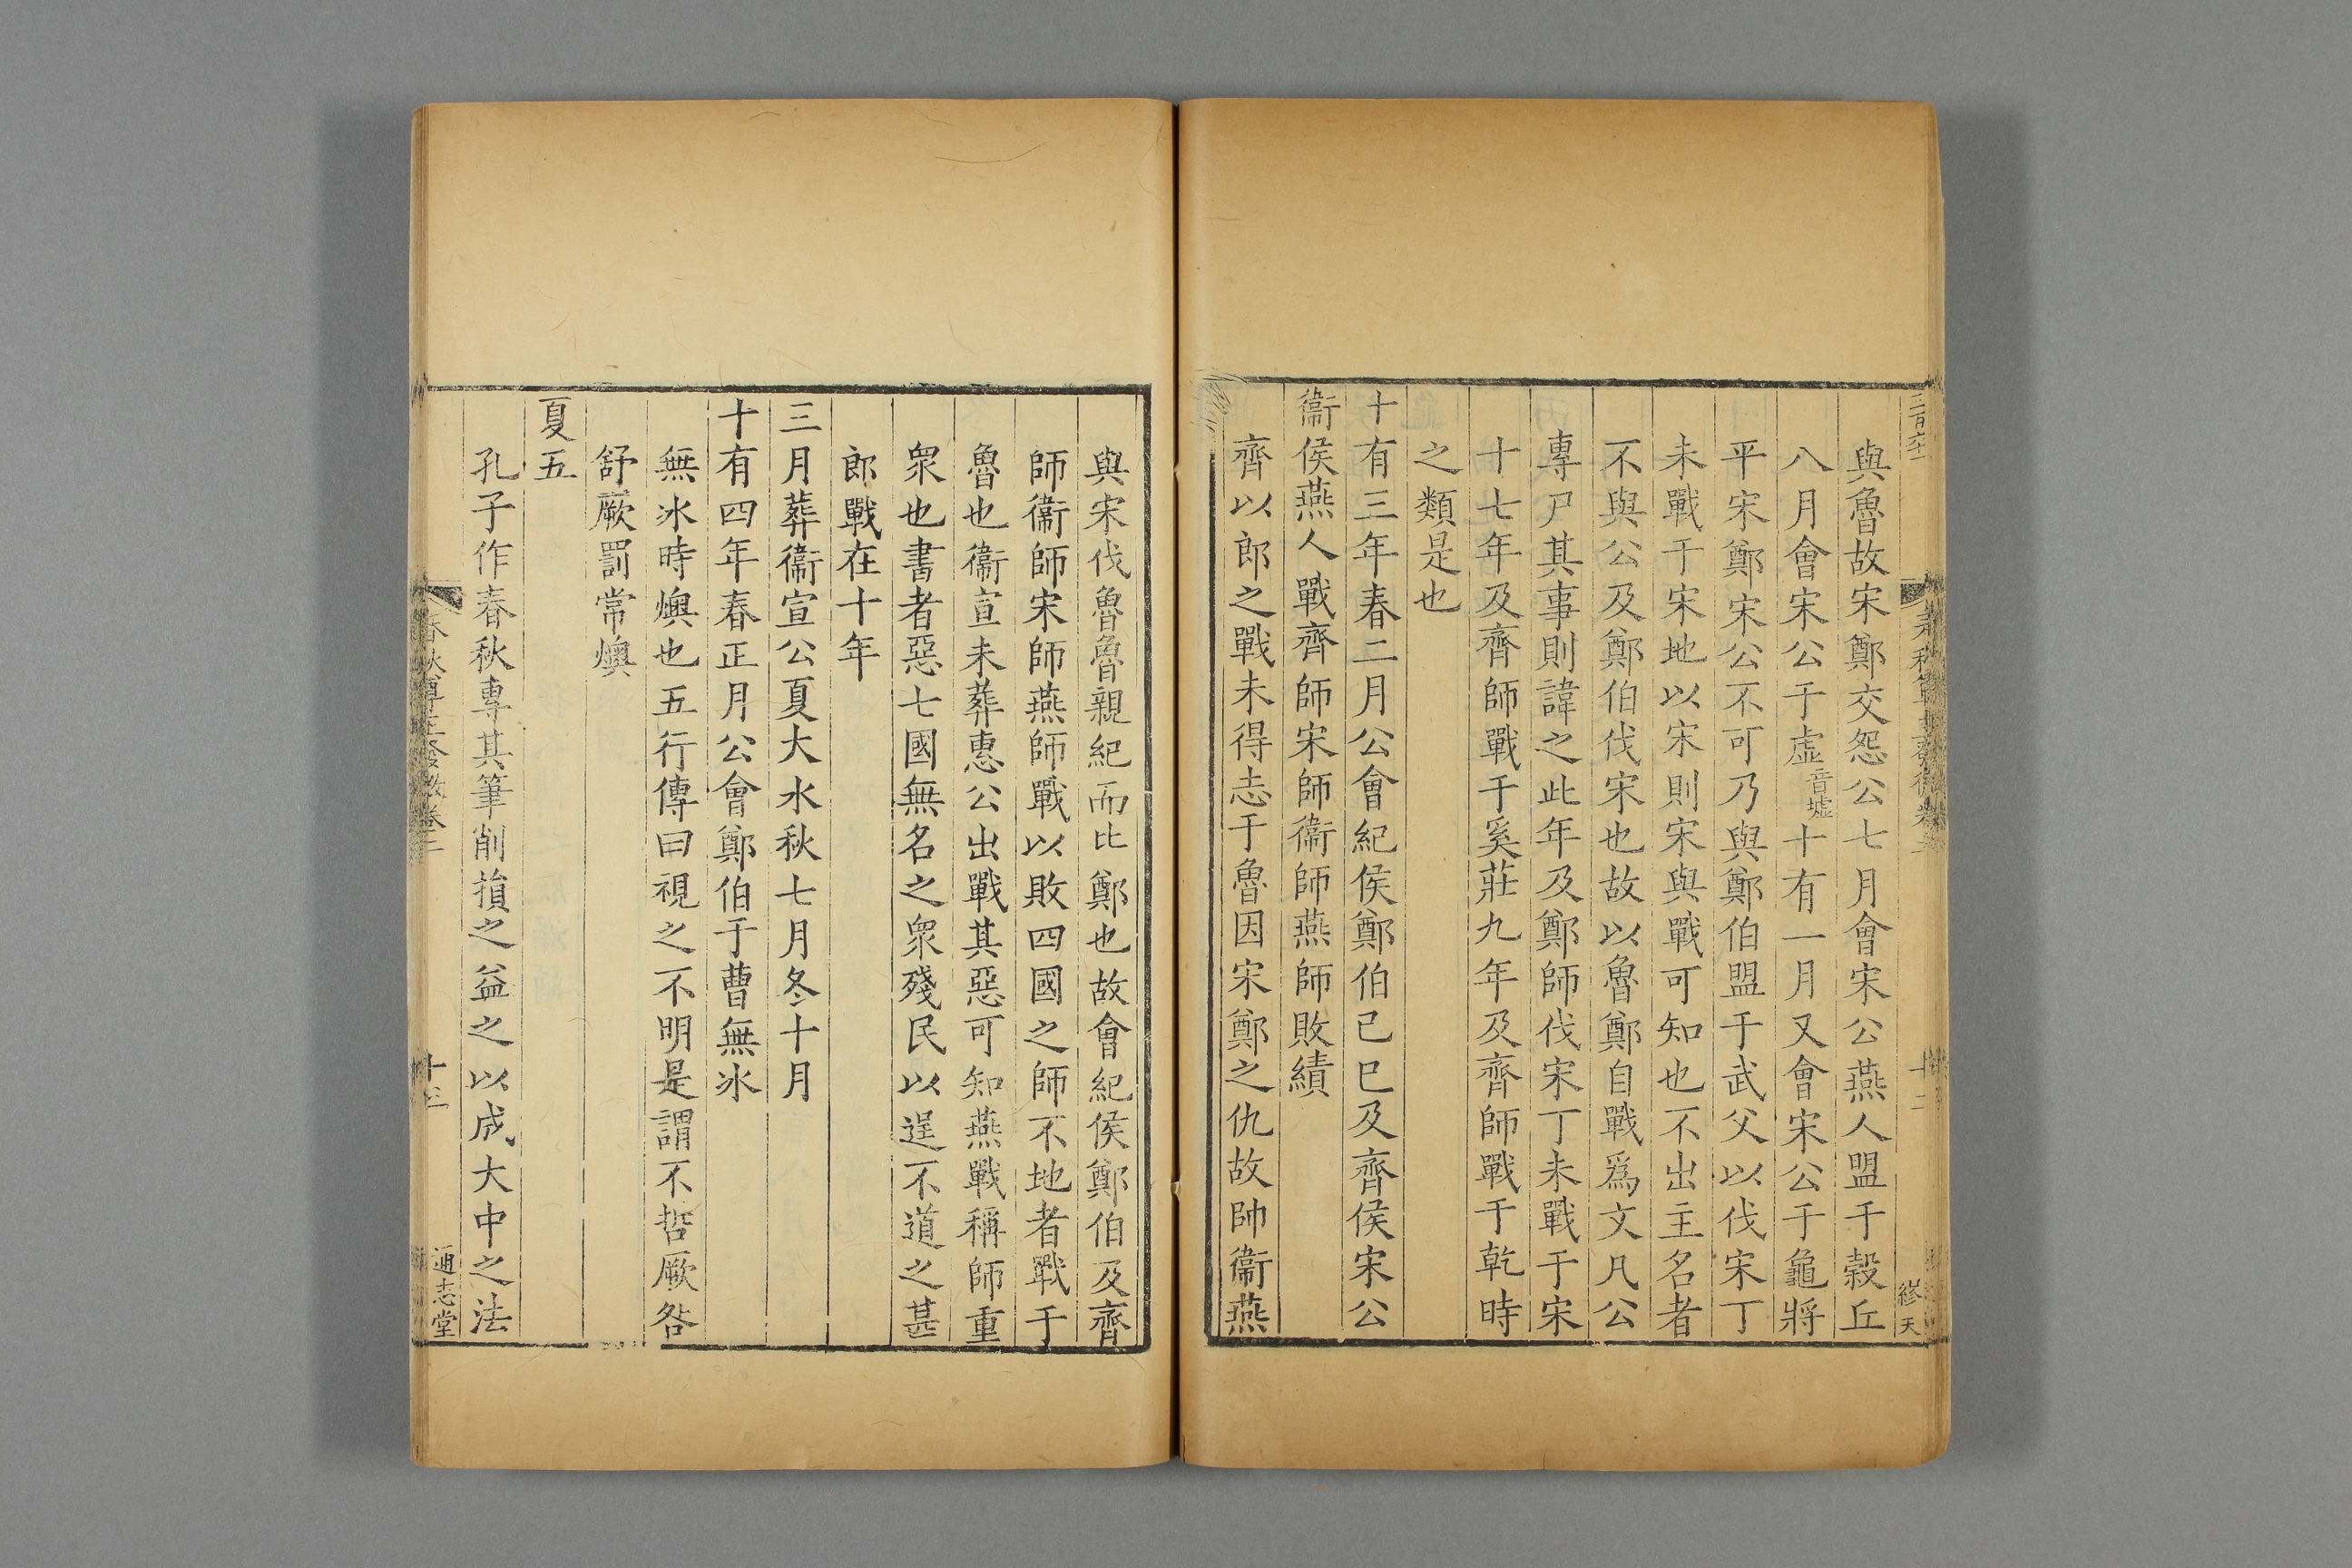 三百六十一
與魯故宋鄭交怨公七月會宋公燕人盟于穀丘
八月會宋公于虚音墟十有一月又會宋公于龜將
平宋鄭宋公不可乃與鄭伯盟于武父以伐宋丁
未戰于宋地以宋則宋與戰可知也不出主名者
不與公及鄭伯伐宋也故以魯鄭自戰爲文凡公
專尸其事則諱之此年及鄭師伐宋丁未戰于宋
十七年及齊師戰于奚莊九年及齊師戰于乾時
之類是也
十有三年春二月公會紀侯鄭伯己巳及齊侯宋公
衞侯燕人戰齊師宋師衞師燕師敗績
齊以郎之戰未得志于魯因宋鄭之仇故帥衞燕
十二
繆天
與宋伐魯魯親紀而比鄭也故會紀侯鄭伯及齊
師衞師宋師燕師戰以敗四國之師不地者戰于
魯也衞宣未葬惠公出戰其惡可知燕戰稱師重
衆也書者惡七國無名之衆殘民以逞不道之甚
郎戰在十年
三月葬衞宣公夏大水秋七月冬十月
十有四年春正月公會鄭伯于曹無冰
無冰時燠也五行傳曰視之不明是謂不哲厥咎
舒厥罰常燠
夏五
孔子作春秋專其筆削損之益之以成大中之法
春秋尊王發微卷二
十三
通志堂